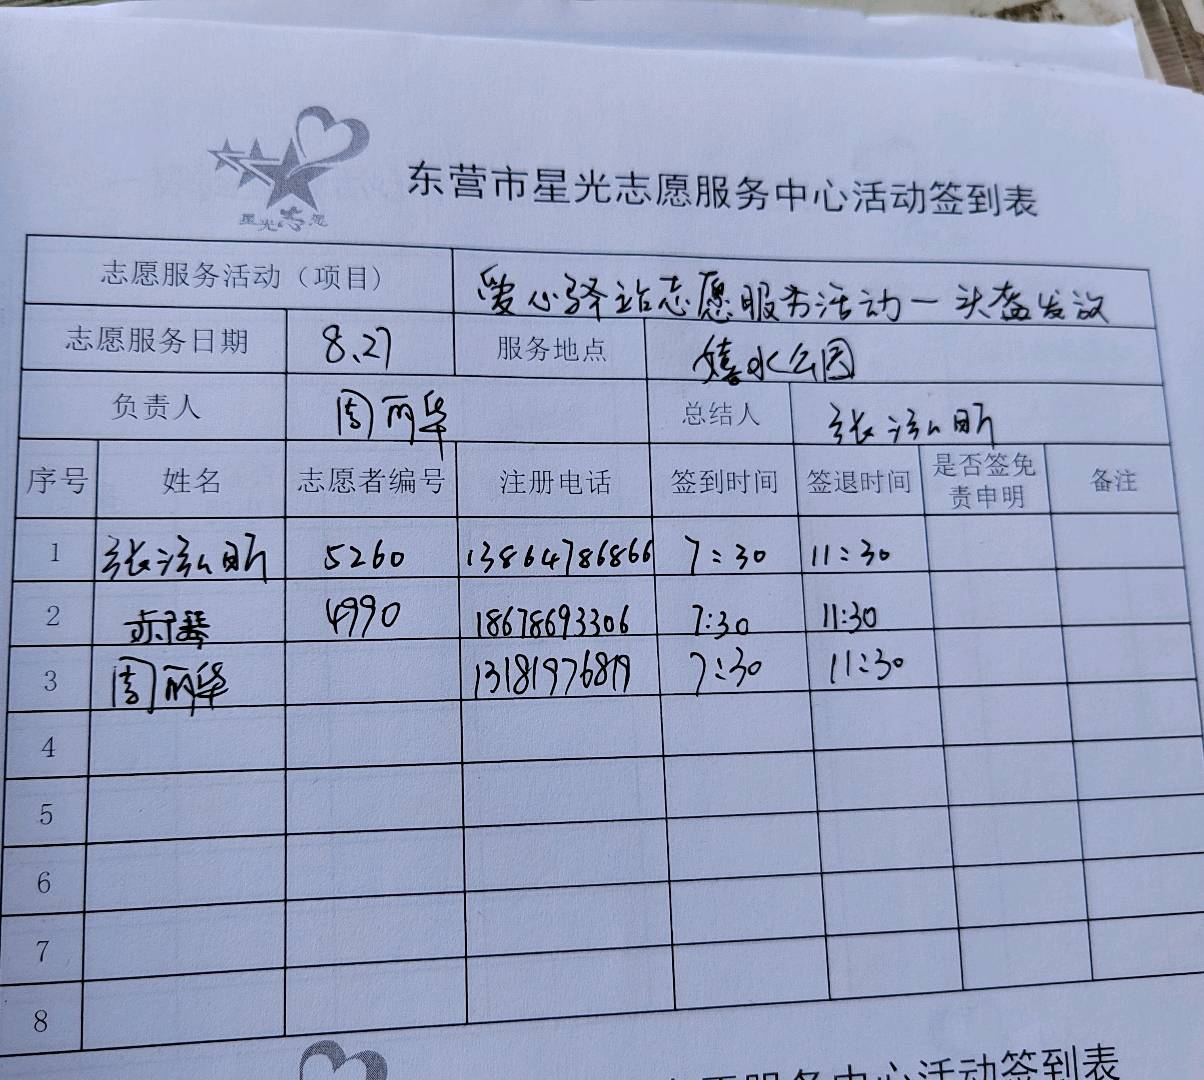 星光志愿
东营市星光志愿服务中心活动签到表
志愿服务活动（项目） 爱心驿站志愿服务活动一头盔发放
志愿服务日期 8.27 服务地点 嬉水公园
负责人 周丽华 总结人 张泓昕
序号 姓名 志愿者编号 注册电话 签到时间 签退时间 是否签免责申明 备注
1 张泓昕 5260 13864786866 7:30 11:30
2 郝琴 4990 18678693306 7:30 11:30
3 周丽华 13181976819 7:30 11:30
4
5
6
7
8
服务中心活动签到表